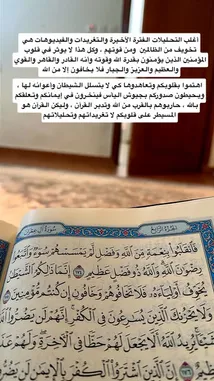 أغلب التحليلات الفترة الأخيرة والتغريدات والفيديوهات هي
تخويف من الظالمين ومن قوتهم ، وكل هذا لا يوثر في قلوب
المؤمنين الذين يؤمنون بقدرة الله وقوته وأنه القادر والقاهر والقوي
والعظيم والعزيز والجبار فلا يخافون إلا من الله
اهتموا بقلوبكم وتعاهدوها كي لا يتسلل الشيطان وأعوانه لها ،
ويحبطون صدوركم بجيوش اليأس فينخرون في إيمانكم وتعلقكم
بالله ، حاربوهم بالقرب من الله وتدبر القرآن ، وليكن القرآن هو
المسيطر على قلوبكم لا تغريداتهم وتحليلاتهم
فَٱنقَلَبُوا۟ بِنِعْمَةٍ مِّنَ ٱللَّهِ وَفَضْلٍ لَّمْ يَمْسَسْهُمْ سُوٓءٌ وَٱتَّبَعُوا۟
رِضْوَٰنَ ٱللَّهِ وَٱللَّهُ ذُو فَضْلٍ عَظِيمٍ ١٧٤ إِنَّمَا ذَٰلِكُمُ ٱلشَّيْطَٰنُ
يُخَوِّفُ أَوْلِيَآءَهُۥ فَلَا تَخَافُوهُمْ وَخَافُونِ إِن كُنتُم مُّؤْمِنِينَ ١٧٥
وَلَا يَحْزُنكَ ٱلَّذِينَ يُسَٰرِعُونَ فِى ٱلْكُفْرِ إِنَّهُمْ لَن يَضُرُّوا۟
ٱللَّهَ شَيْـًٔا يُرِيدُ ٱللَّهُ أَلَّا يَجْعَلَ لَهُمْ حَظًّا فِى ٱلْـَٔاخِرَةِ وَلَهُمْ عَذَابٌ
إِنَّ ٱلَّذِينَ ٱشْتَرَوُا۟ ٱلْكُفْرَ بِٱلْإِيمَٰنِ لَن يَضُرُّوا۟